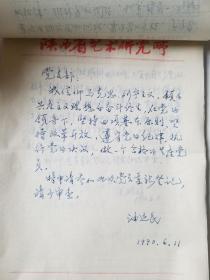 陕西省艺术研究所
党支部：
我信仰马克思、列宁主义，愿为
共产主义理想而奋斗终生，在党的
领导下，坚持四项基本原则，坚
持改革开放，遵守党的纪律，执
行党的决议，做一个合格的共产党
员。
特申请参加此次党员重新登记，
请予审查。
1990.6.11